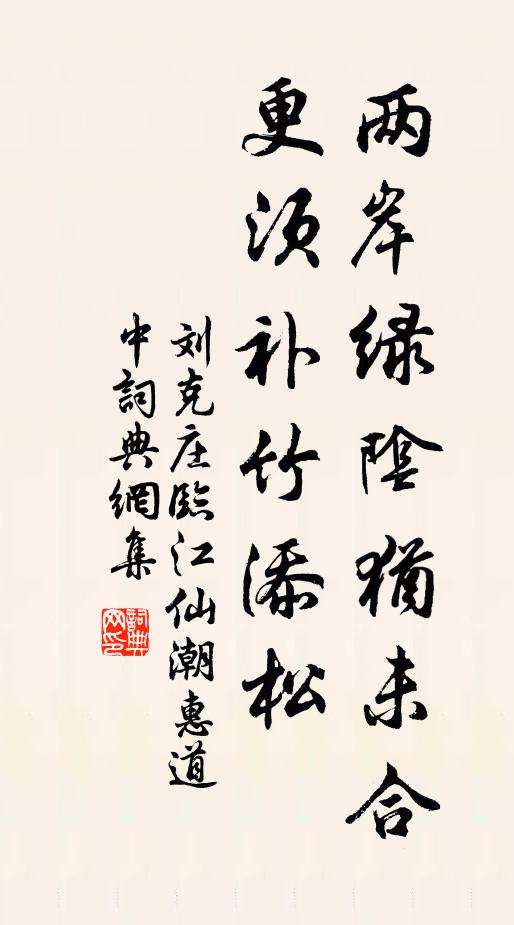 两岸緑陰猶未合
更须补竹添松
刘克庄臨江仙潮惠道
中詞典網集
詞典网印